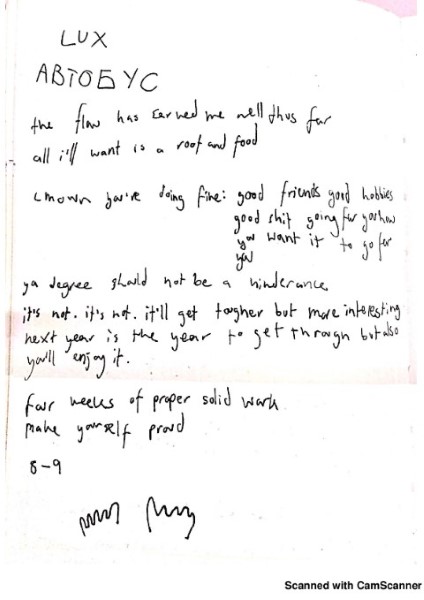 LUX
АВТОБУС
the flow has served me well thus far
all i'll want is a roof and food
cmown you're doing fine: good friends good hobbies
good shit going for you how
you want it to go for
you
ya degree should not be a hinderance
it's not. it's not. it'll get tougher but more interesting
next year is the year to get through but also
you'll enjoy it.
four weeks of proper solid work
make yourself proud
8-9
Scanned with CamScanner